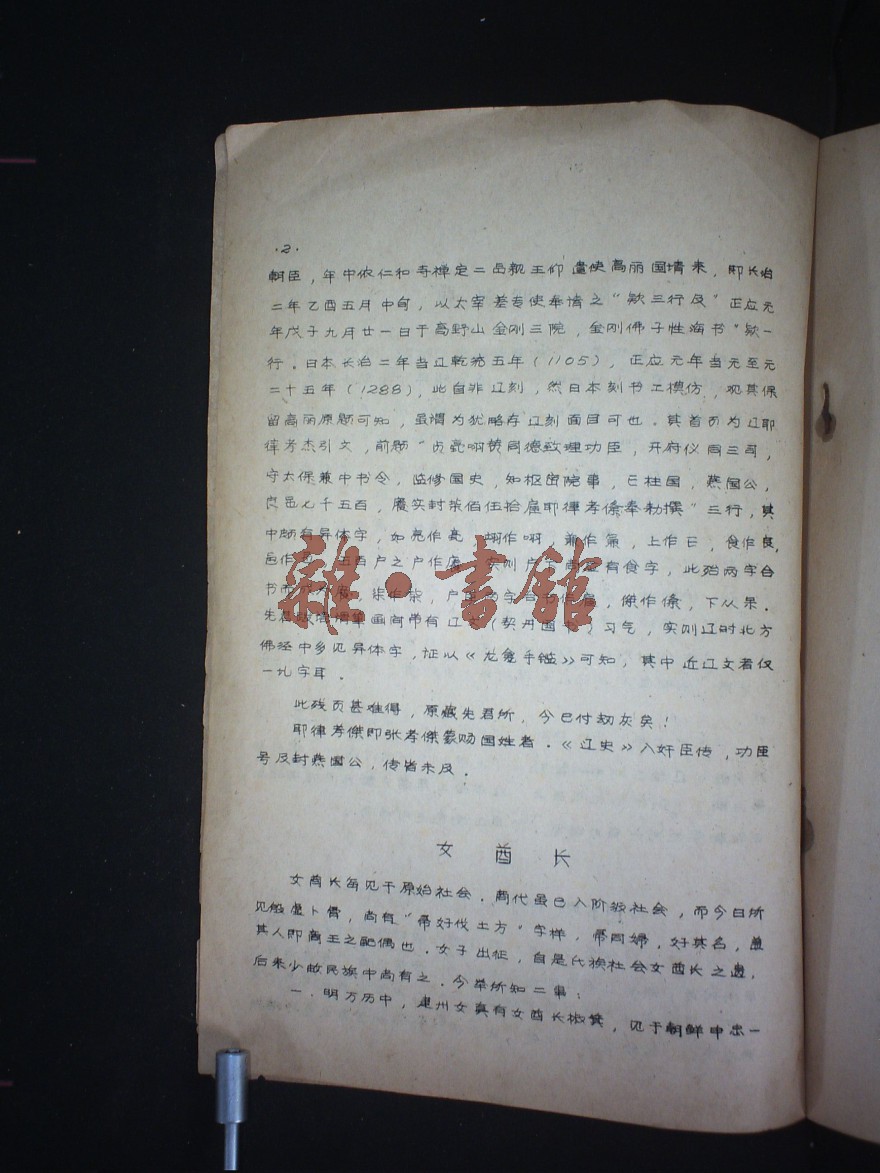 ·2·
朝臣，年中依仁和寺禅定二品亲王仰遣使高丽国请来，即长治
二年乙酉五月中旬，以太宰差专使奉请之"款三行及"正应元
年戊子九月廿一日于高野山金刚三院，金刚佛子性海书"款一
行．日本长治二年当辽乾统五年（1105），正应元年当元至元
二十五年（1288），此自非辽刻，然日本刻书工模仿，观其保
留高丽原题可知，虽谓为犹略存辽刻面目可也．其首页为辽耶
律孝杰引文，前题"贞亮啊赞同德致理功臣，开府仪同三司，
守太保兼中书令，监修国史，知枢密院事，上柱国，燕国公，
食邑七千五百，实封柒佰伍拾耶律孝傑奉勅撰"三行，其
中颇有异体字，如亮作，翊作啊，兼作，上作，食作，
邑作，五百户之户作，实则户下有食字，此殆两字合
书而，柒作，户两字合书作，傑作，下从果．
先笔画尚带有辽文（契丹国）习气，实则辽时北方
佛经中多见异体字，证以《龙龛手鉴》可知，其中近辽文者仅
一九字耳．
此残页甚难得，原藏先君所，今已付劫灰矣！
耶律孝傑即张孝傑蒙赐国姓者．《辽史》入奸臣传，功臣
号及封燕国公，传皆未及．
女酋长
女酋长每见于原始社会．商代虽已入阶级社会，而今日所
见殷虚卜骨，尚有"帚好伐土方"字样，帚同婦，好其名，
其人即商王之配偶也．女子出征，自是氏族社会女酋长之遗，
后来少数民族中尚有之．今举所知二事：
一．明万历中，建州女真有女酋长椒箕，见于朝鲜申忠一
雜·書館